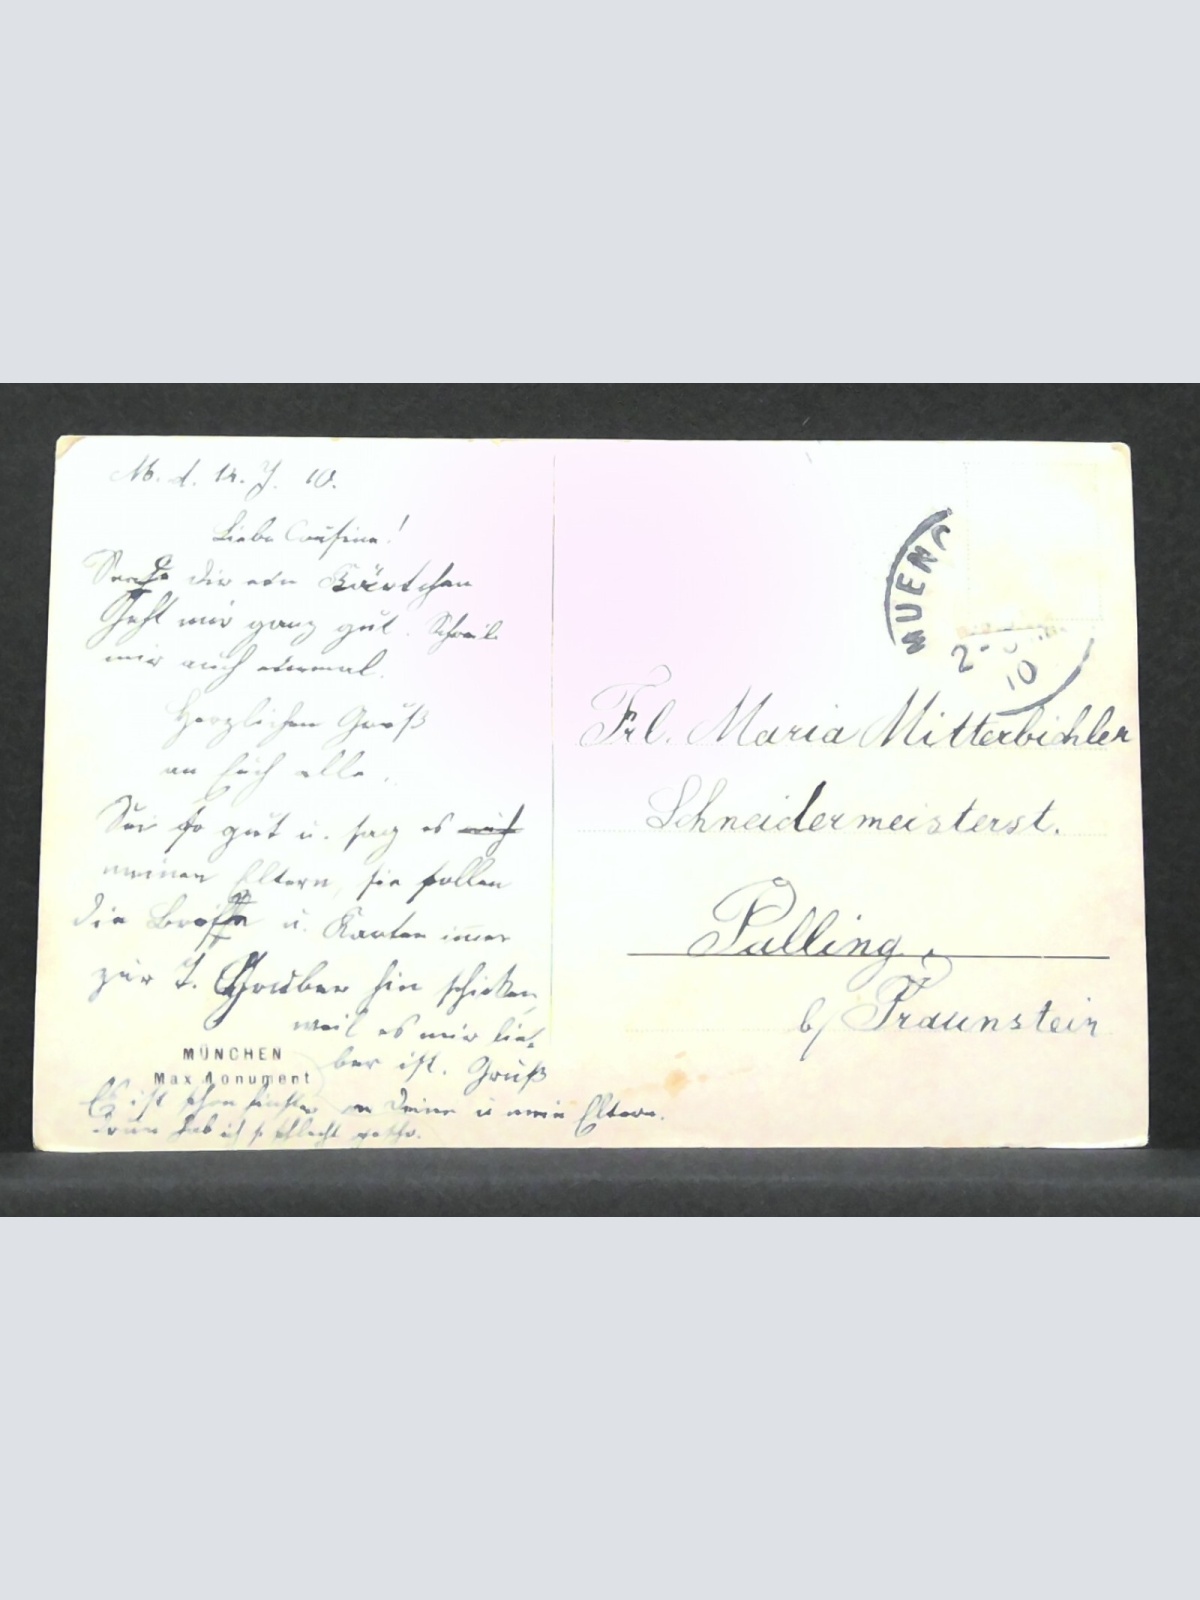 M. d. 14. J. 10.
Liebe Cousine!
Sende dir ein Kärtchen
Geht mir ganz gut. Schreib
mir auch einmal.
Herzlichen Gruß
an Euch alle.
Sei so gut u. sag es
meinen Eltern, sie sollen
die Briefe u. Karten immer
zur T. Gruber hin schicken,
weil es mir lie-
ber ist. Gruß
an Deine u mein Eltern.
Es ist schon finster
drum hab ich so schlecht geschr.
MÜNCHEN
Max Monument
MUENC
10
Frl. Maria Mitterbichler
Schneidermeisterst.
Palling
b/ Traunstein